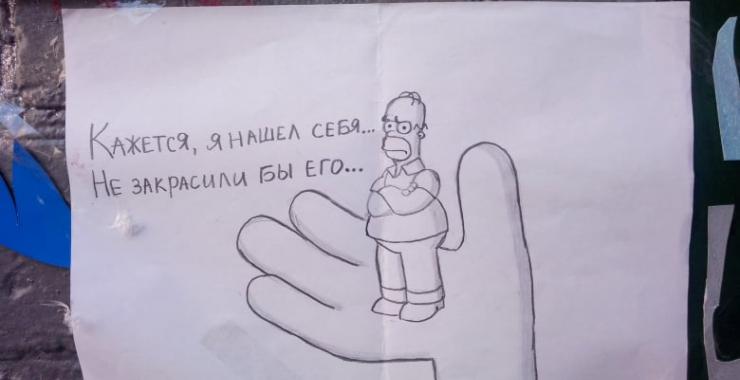 Кажется, я нашел себя...
Не закрасили бы его...